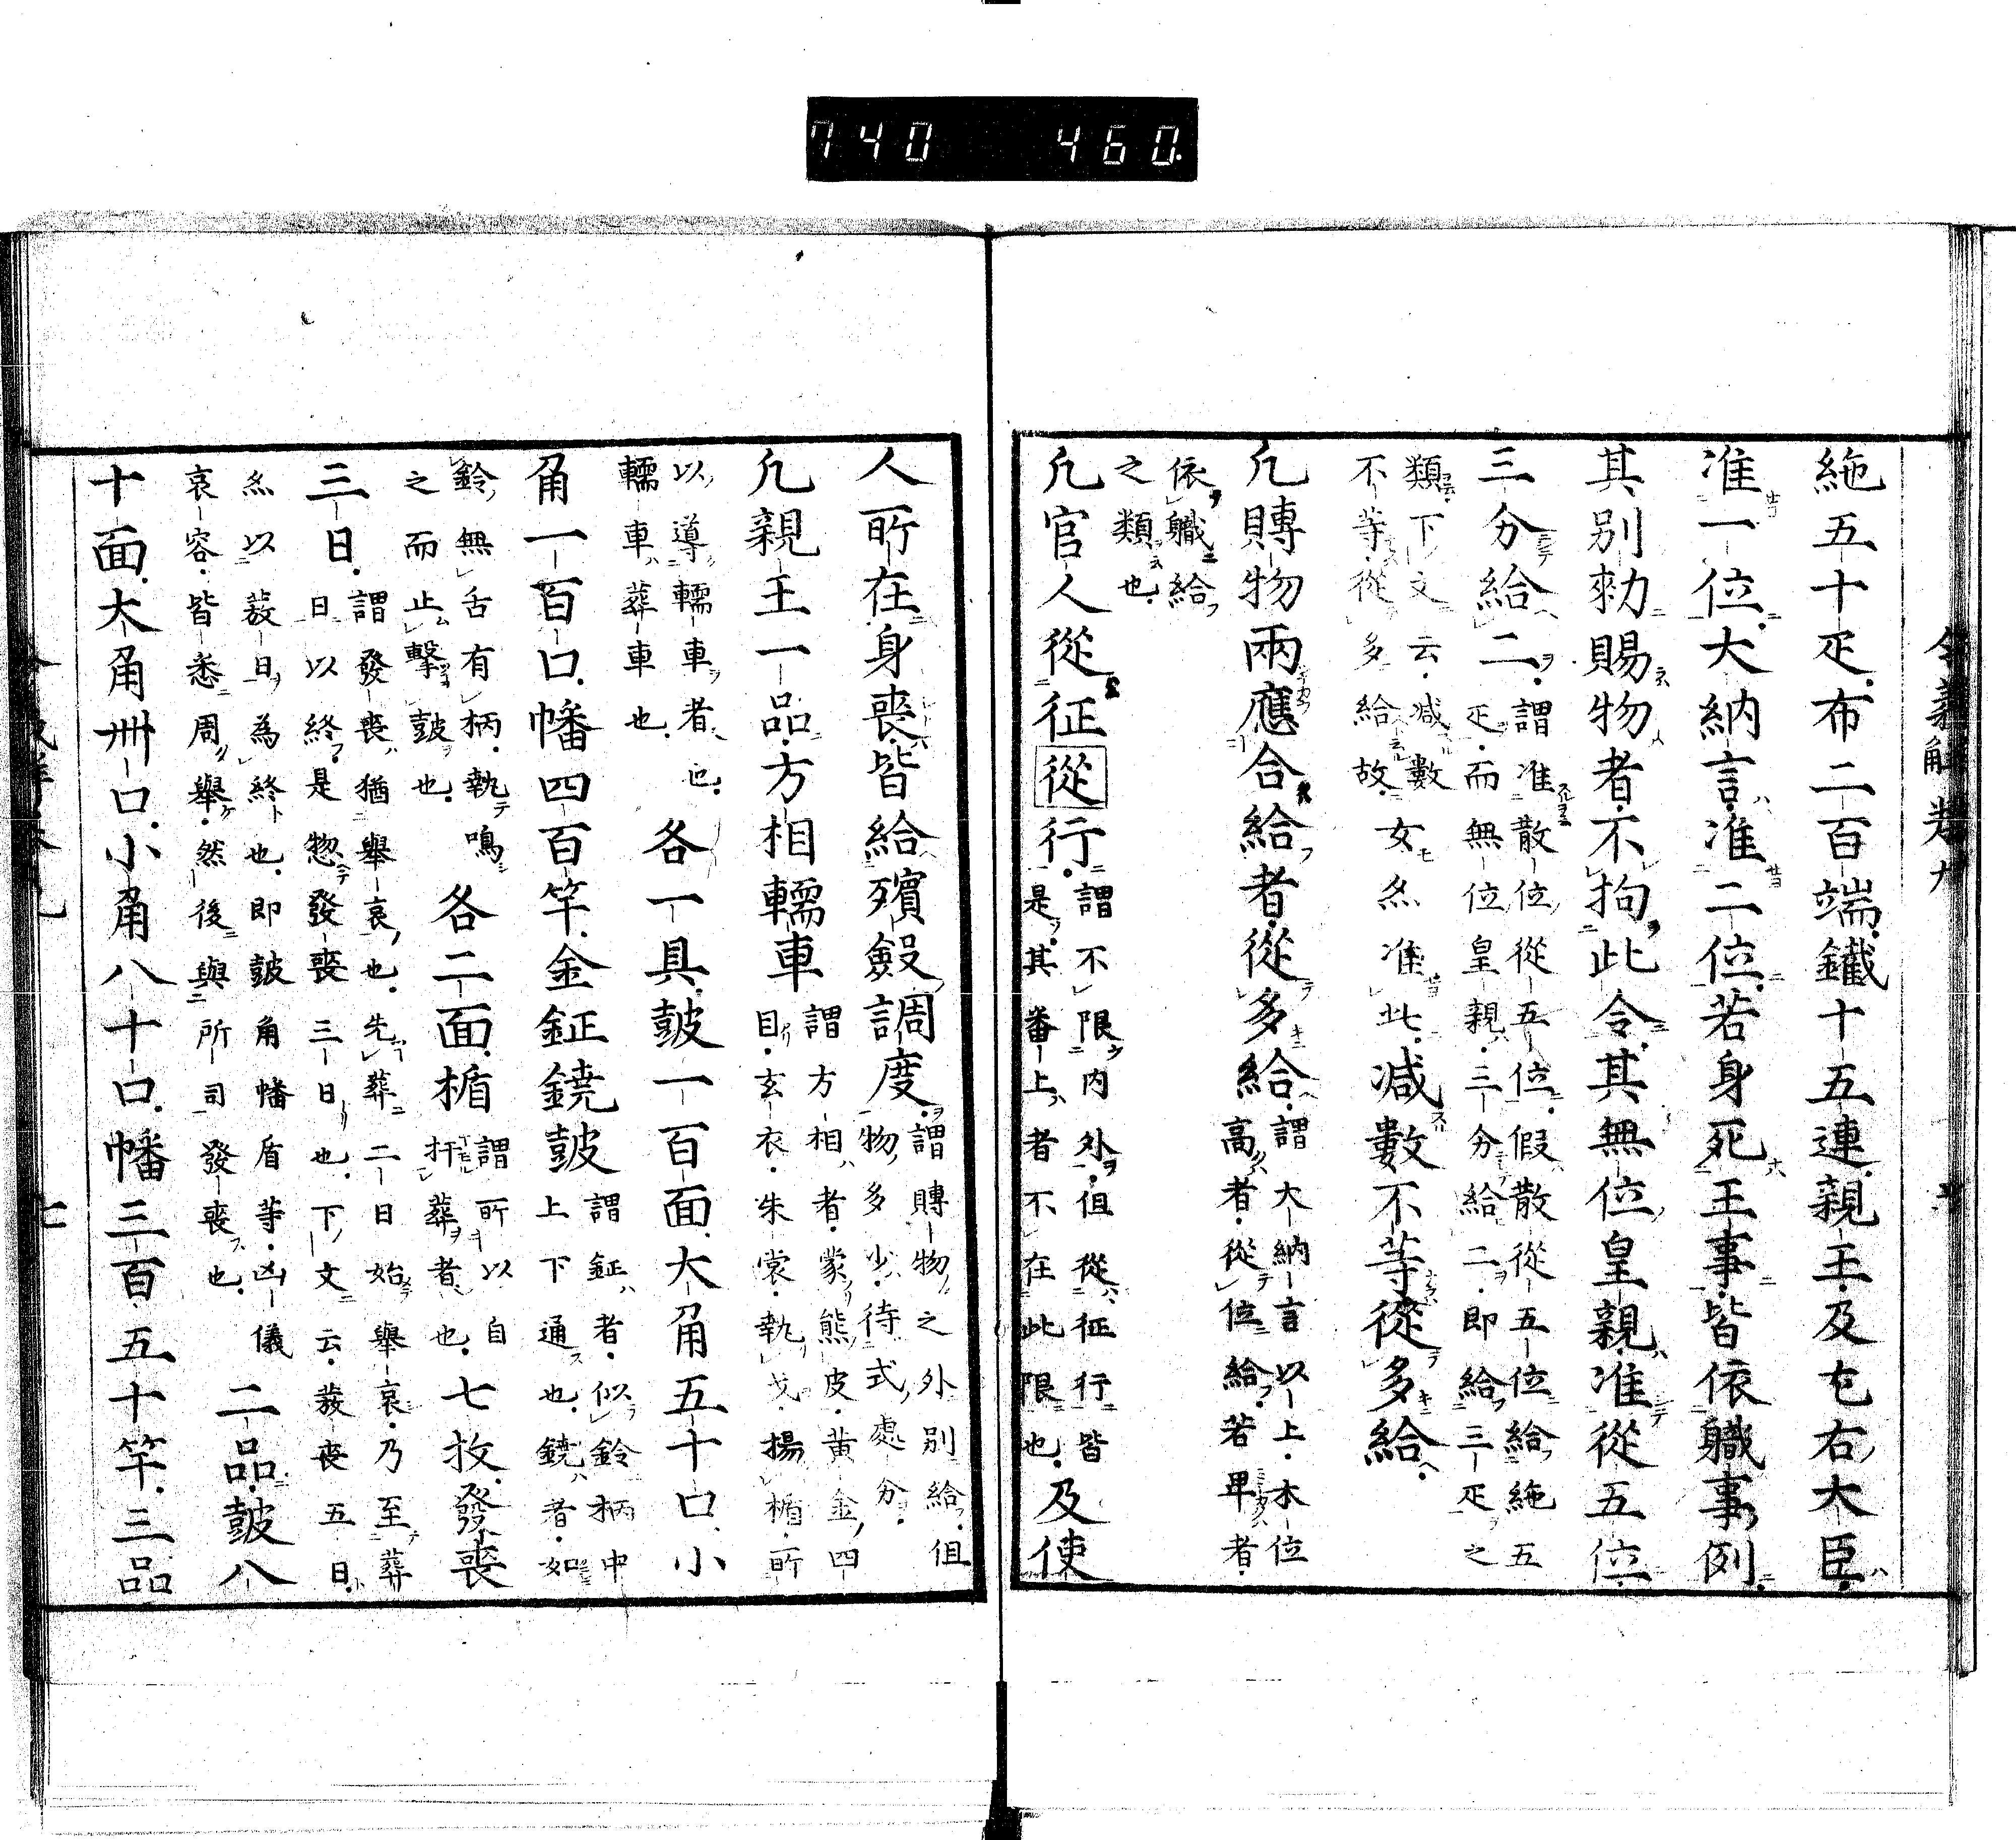 740 460.
令義解卷九
絁五十疋布二百端鐵十五連親王及左右大臣
准一位大納言准二位若身死王事皆依職事例
其別勅賜物者不拘此令其無位皇親准從五位
三分給二謂准散位從五位假散從五位給絁五
疋而無位皇親三分給二即給三疋之
類下文云減數
不等從多給故女亦准此減數不等從多給
凡賻物兩應合給者從多給謂大納言以上本位
高者從位給若卑者
依職給
之類也
凡官人從征從行謂不限內外但從征行皆
是其番上者不在此限也及使
人所在身喪皆給殯斂調度謂賻物之外別給但
物多少待式處分
凡親王一品方相轜車謂方相者蒙熊皮黃金四
目玄衣朱裳執戈揚楯所
以導轜車者也
轜車葬車也各一具鼓一百面大角五十口小
角一百口幡四百竿金鉦鐃鼓謂鉦者似鈴柄中
上下通也鐃者如
鈴無舌有柄執鳴
之而止擊鼓也各二面楯謂所以自
扞葬者也七枚發喪
三日謂發喪猶舉哀也先葬二日始舉哀乃至葬
日以終是惣發喪三日也下文云發喪五日
亦以發日為終也即鼓角幡盾等凶儀
哀容皆悉周舉然後與所司發喪也二品鼓八
十面大角卌口小角八十口幡三百五十竿三品
七